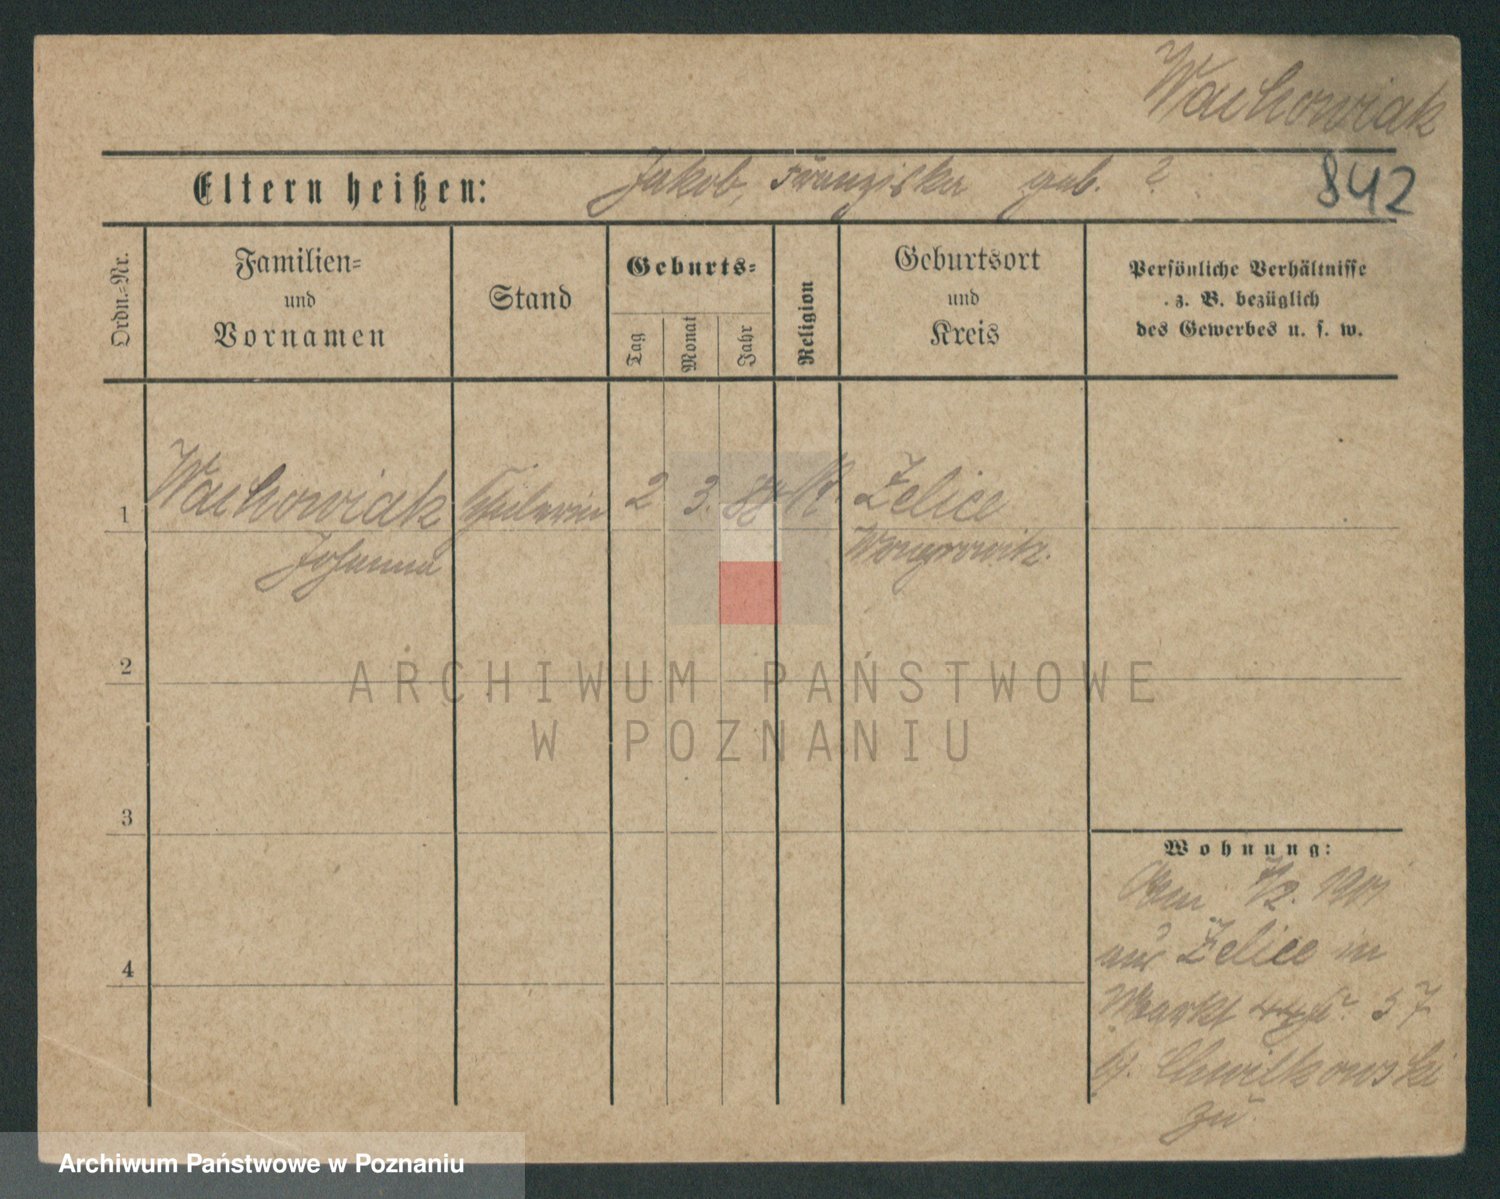 Wachowiak
Eltern heißen: Jakob, Franziska geb. ?
842
Ordn.-Nr.
Familien-
und
Vornamen
Stand
Geburts-
Tag
Monat
Jahr
Religion
Geburtsort
und
Kreis
Persönliche Verhältnisse
z. B. bezüglich
des Gewerbes u. s. w.
1
Wachowiak Schülerin 2 3. 88 Zelice
Johanna Wongrowitz.
2
ARCHIWUM PAŃSTWOWE
W POZNANIU
3
Wohnung:
1901
aus Zelice in
Markt 57
b. Chwilkowski
zu
4
Archiwum Państwowe w Poznaniu